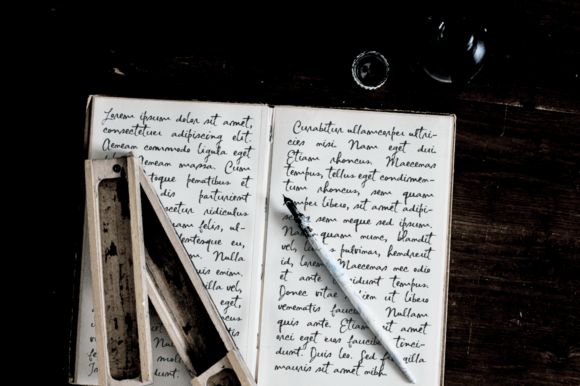 Lorem ipsum dolor sit amet,
consectetuer adipiscing elit.
Aenean commodo ligula eget
Aenean massa. Cum
toque penatibus et
dis parturient
ascetur ridiculus
uam felis, ul-
entesque eu,
m. Nulla
quis enim.
gilla vel,
eget,
dunt.
Curabitur ullamcorper ultri-
cies nisi. Nam eget dui.
Etiam rhoncus. Maecenas
tempus, tellus eget condimen-
tum rhoncus, sem quam
semper libero, sit amet adipi-
sem neque sed ipsum.
Nam quam nunc, blandit
vel, pulvinar, hendrerit
id, lorem. Maecenas nec odio
et ante tempus.
Donec vitae ut libero
venenatis faucibus Nullam
quis ante. Etiam sit amet
orci eget eros faucibus tinci-
dunt. Duis leo. Sed fringilla
mauris sit amet nibh.